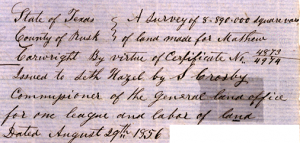 State of Texas } A survey of 8.890.000 square varas
County of Rusk } of land made for Mathew
Cartwright By virtue of Certificate No. 4873/4974
Issued to Seth Hazel by S Crosby
Commissioner of the General land office
for one league and labor of land
Dated August 29th 1856